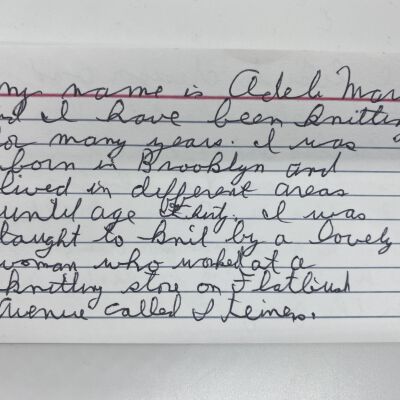 my name is Adele Mar
nd I have been knitting
for many years. I was
born in Brooklyn and
lived in different areas
until age thirty. I was
taught to knit by a lovely
woman who worked at a
knitting store on Flatbush
Avenue called Steiners.